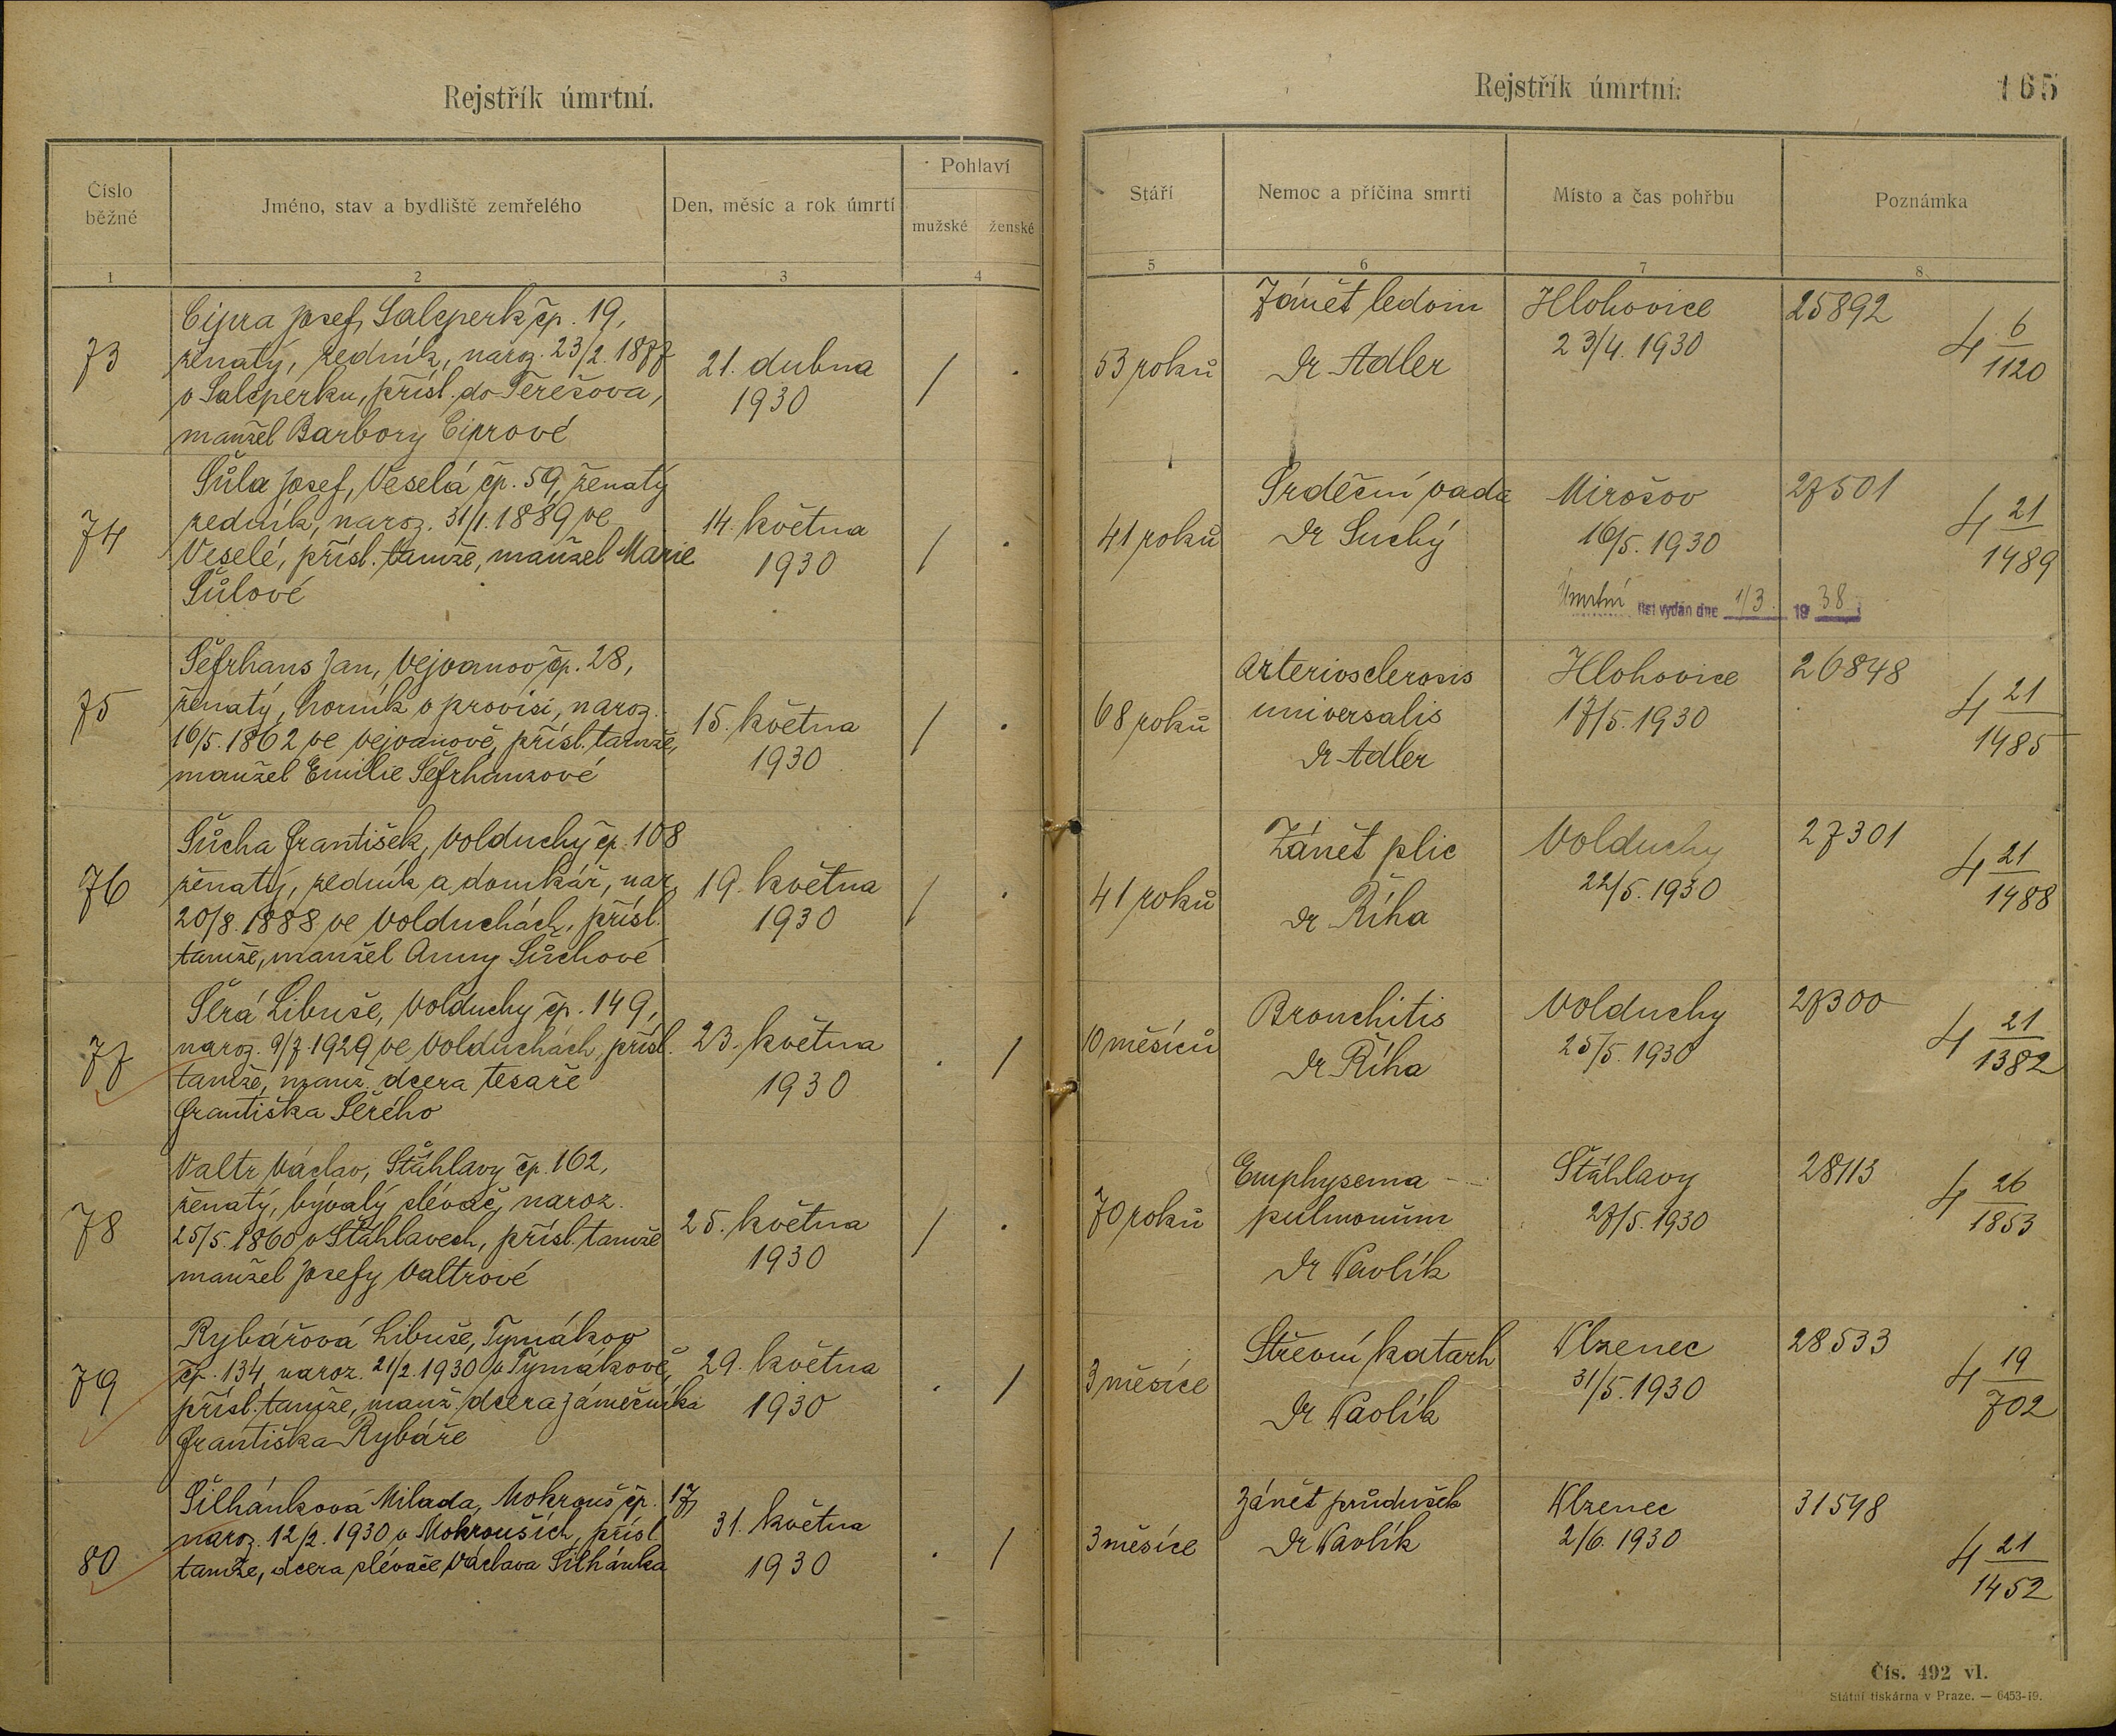 Rejstřík úmrtní.
Číslo běžné
Jméno, stav a bydliště zemřelého
Den, měsíc a rok úmrtí
Pohlaví
mužské ženské
1 2 3 4
73
Cipra Josef, Salcperk čp. 19,
ženatý, zedník, naroz. 23/2. 1877
v Salcperku, přísl. do Terešova,
manžel Barbory Ciprové
21. dubna
1930
/ .
74
Šůla Josef, Veselá čp. 59, ženatý
zedník, naroz. 31/1. 1889 ve
Veselé, přísl. tamže, manžel Marie
Šůlové
14. května
1930
/ .
75
Šefrhans Jan, Vejvanov čp. 28,
ženatý, horník v provisi, naroz.
16/5. 1862 ve Vejvanově, přísl. tamže,
manžel Emilie Šefrhanzové
15. května
1930
/ .
76
Šůcha František, Volduchy čp. 108
ženatý, zedník a domkář, nar.
20/8. 1888 ve Volduchách, přísl.
tamže, manžel Anny Šůchové
19. května
1930
/ .
77
Šerá Libuše, Volduchy čp. 149,
naroz. 9/7. 1929 ve Volduchách, přísl.
tamže, manž. dcera tesaře
Františka Šerého
23. května
1930
. /
78
Valtr Václav, Šťáhlavy čp. 162,
ženatý, bývalý slévač, naroz.
25/5. 1860 v Šťáhlavech, přísl. tamže
manžel Josefy Valtrové
25. května
1930
/ .
79
Rybářová Libuše, Tymákov
čp. 134, naroz. 21/2. 1930 v Tymákově,
přísl. tamže, manž. dcera zámečníka
Františka Rybáře
29. května
1930
. /
80
Šilhánková Milada, Mokrouš čp. 17,
naroz. 12/2. 1930 v Mokrouších, přísl.
tamže, dcera slévače Václava Šilhánka
31. května
1930
. /
Rejstřík úmrtní.
165
Stáří
Nemoc a příčina smrti
Místo a čas pohřbu
Poznámka
5 6 7 8
53 roků
Zánět ledvin
Dr Adler
Hlohovice
23/4. 1930
25892
4 6/1120
41 roků
Srdeční vada
Dr Suchý
Mirošov
16/5. 1930
27501
4 21/1489
Úmrtní list vydán dne 1/3. 1938
68 roků
Arteriosclerosis
universalis
Dr Adler
Hlohovice
17/5. 1930
26848
4 21/1485
41 roků
Zánět plic
Dr Říha
Volduchy
22/5. 1930
27301
4 21/1488
10 měsíců
Bronchitis
Dr Říha
Volduchy
25/5. 1930
27300
4 21/1382
70 roků
Emphysema
pulmonum
Dr Pavlík
Šťáhlavy
27/5. 1930
28113
4 26/1853
3 měsíce
Střevní katarh
Dr Pavlík
Plzenec
31/5. 1930
28533
4 19/702
3 měsíce
Zánět průdušek
Dr Pavlík
Plzenec
2/6. 1930
31548
4 21/1452
Čís. 492 vl.
Státní tiskárna v Praze. — 6453-19.